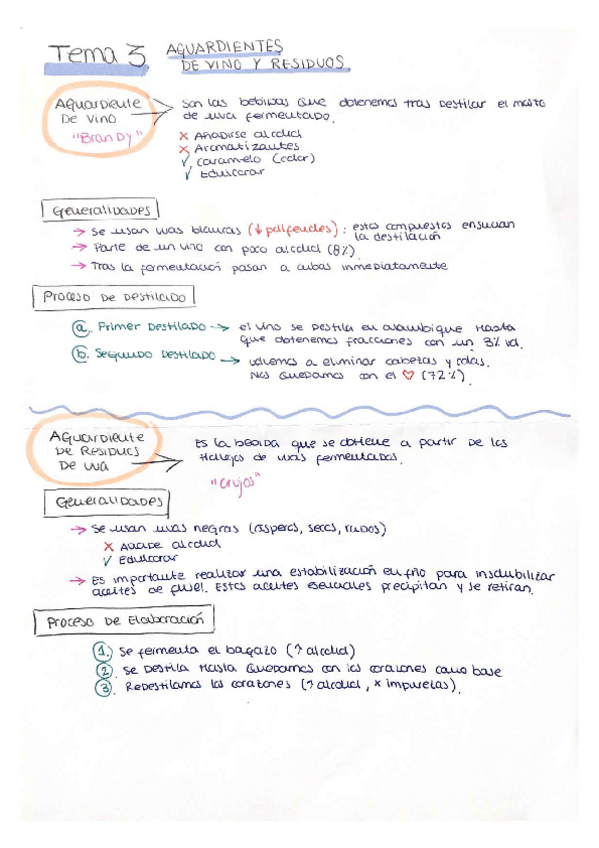 Tema 3 AGUARDIENTES
DE VINO Y RESIDUOS.
Aguardiente
De Vino
"Brandy"
Son las bebidas que obtenemos tras destilar el mosto
de uva fermentado.
x Añadirse alcohol
x Aromatizantes
✓ Caramelo (color)
✓ Edulcorar
Generalidades
→ Se usan uvas blancas (↓ polifenoles) : estos compuestos ensucian
la destilación
→ Parte de un vino con poco alcohol (8%)
→ Tras la fermentación pasan a cubas inmediatamente
Proceso de Destilado
a. Primer Destilado → el vino se destila en alambique hasta
que obtenemos fracciones con un 3% vol.
b. Segundo Destilado → volvemos a eliminar cabezas y colas.
Nos quedamos con el ♡ (72%).
Aguardiente
De Residuos
De uva
Es la bebida que se obtiene a partir de los
hollejos de uvas fermentadas.
"orujos"
Generalidades
→ Se usan uvas negras (ásperos, secos, rudos)
x Añade alcohol
✓ Edulcorar
→ Es importante realizar una estabilización en frío para insolubilizar
aceites de fusel. Estos aceites esenciales precipitan y se retiran.
Proceso de Elaboración
1. Se fermenta el bagazo (↑ alcohol)
2. Se destila hasta quedarnos con los corazones como base
3. Redestilamos los corazones (↑ alcohol, x impurezas).